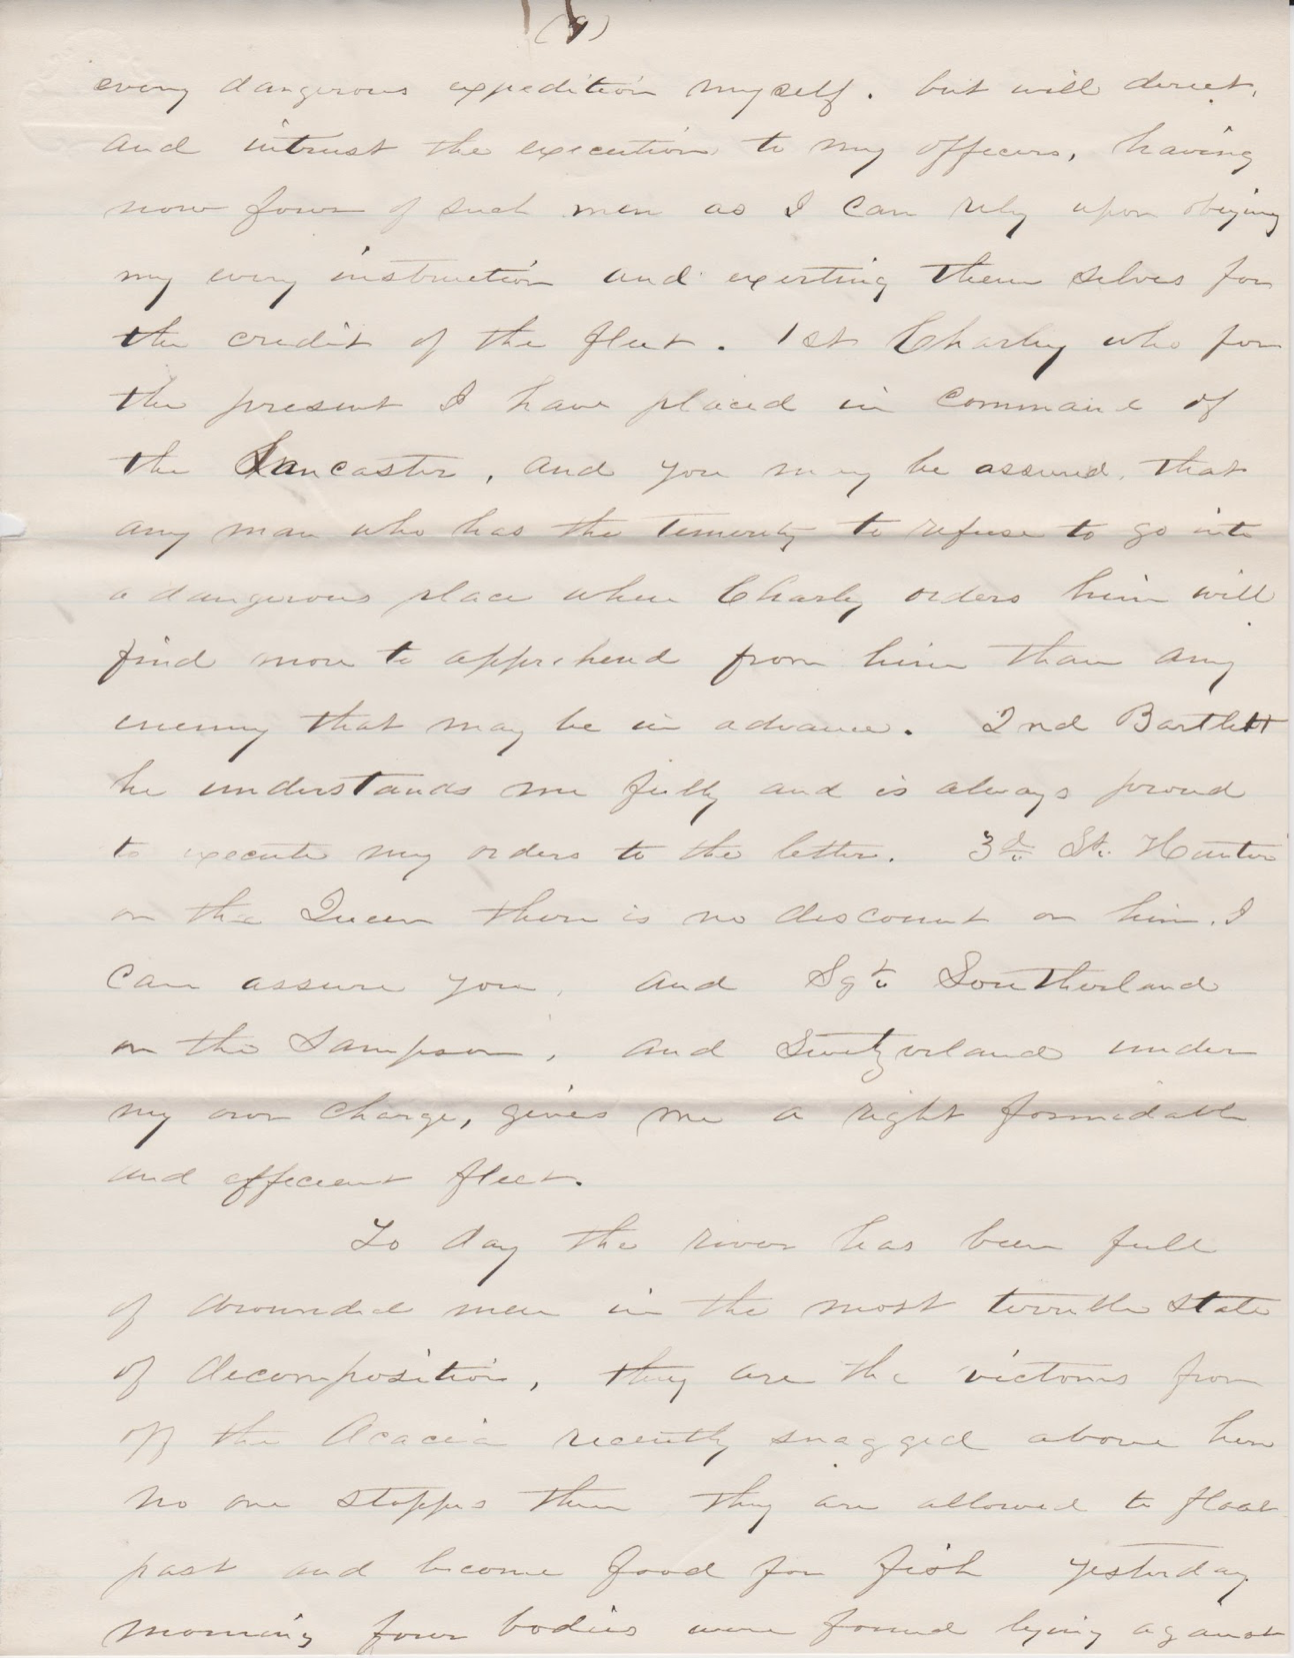 (9)
every dangerous expedition myself. but will direct,
and intrust the execution to my officers, having
now four of such men as I can rely upon obeying
my every instruction and exerting them selves for
the credit of the fleet. 1st Charley who for
the present I have placed in command of
the Lancaster, and you may be assured, that
any man who has the temerity to refuse to go into
a dangerous place when Charly orders him will
find more to apprehend from him than any
enemy that may be in advance. 2nd Bartlett
he understands me fully and is always proud
to execute my orders to the letter. 3d. Lt. Hunter
on the Queen there is no discount on him. I
can assure you, and Sgt. Southerland
on the Sampson, and Switzerland under
my own charge, gives me a right formidable
and efficient fleet.
To day the river has been full
of drownded men in the most terrible state
of decomposition, they are the victoms from
off the Acacia recently snagged above here
no one stoppes them they are allowed to float
past and become food for fish yesterday
morning four bodies were found lying against